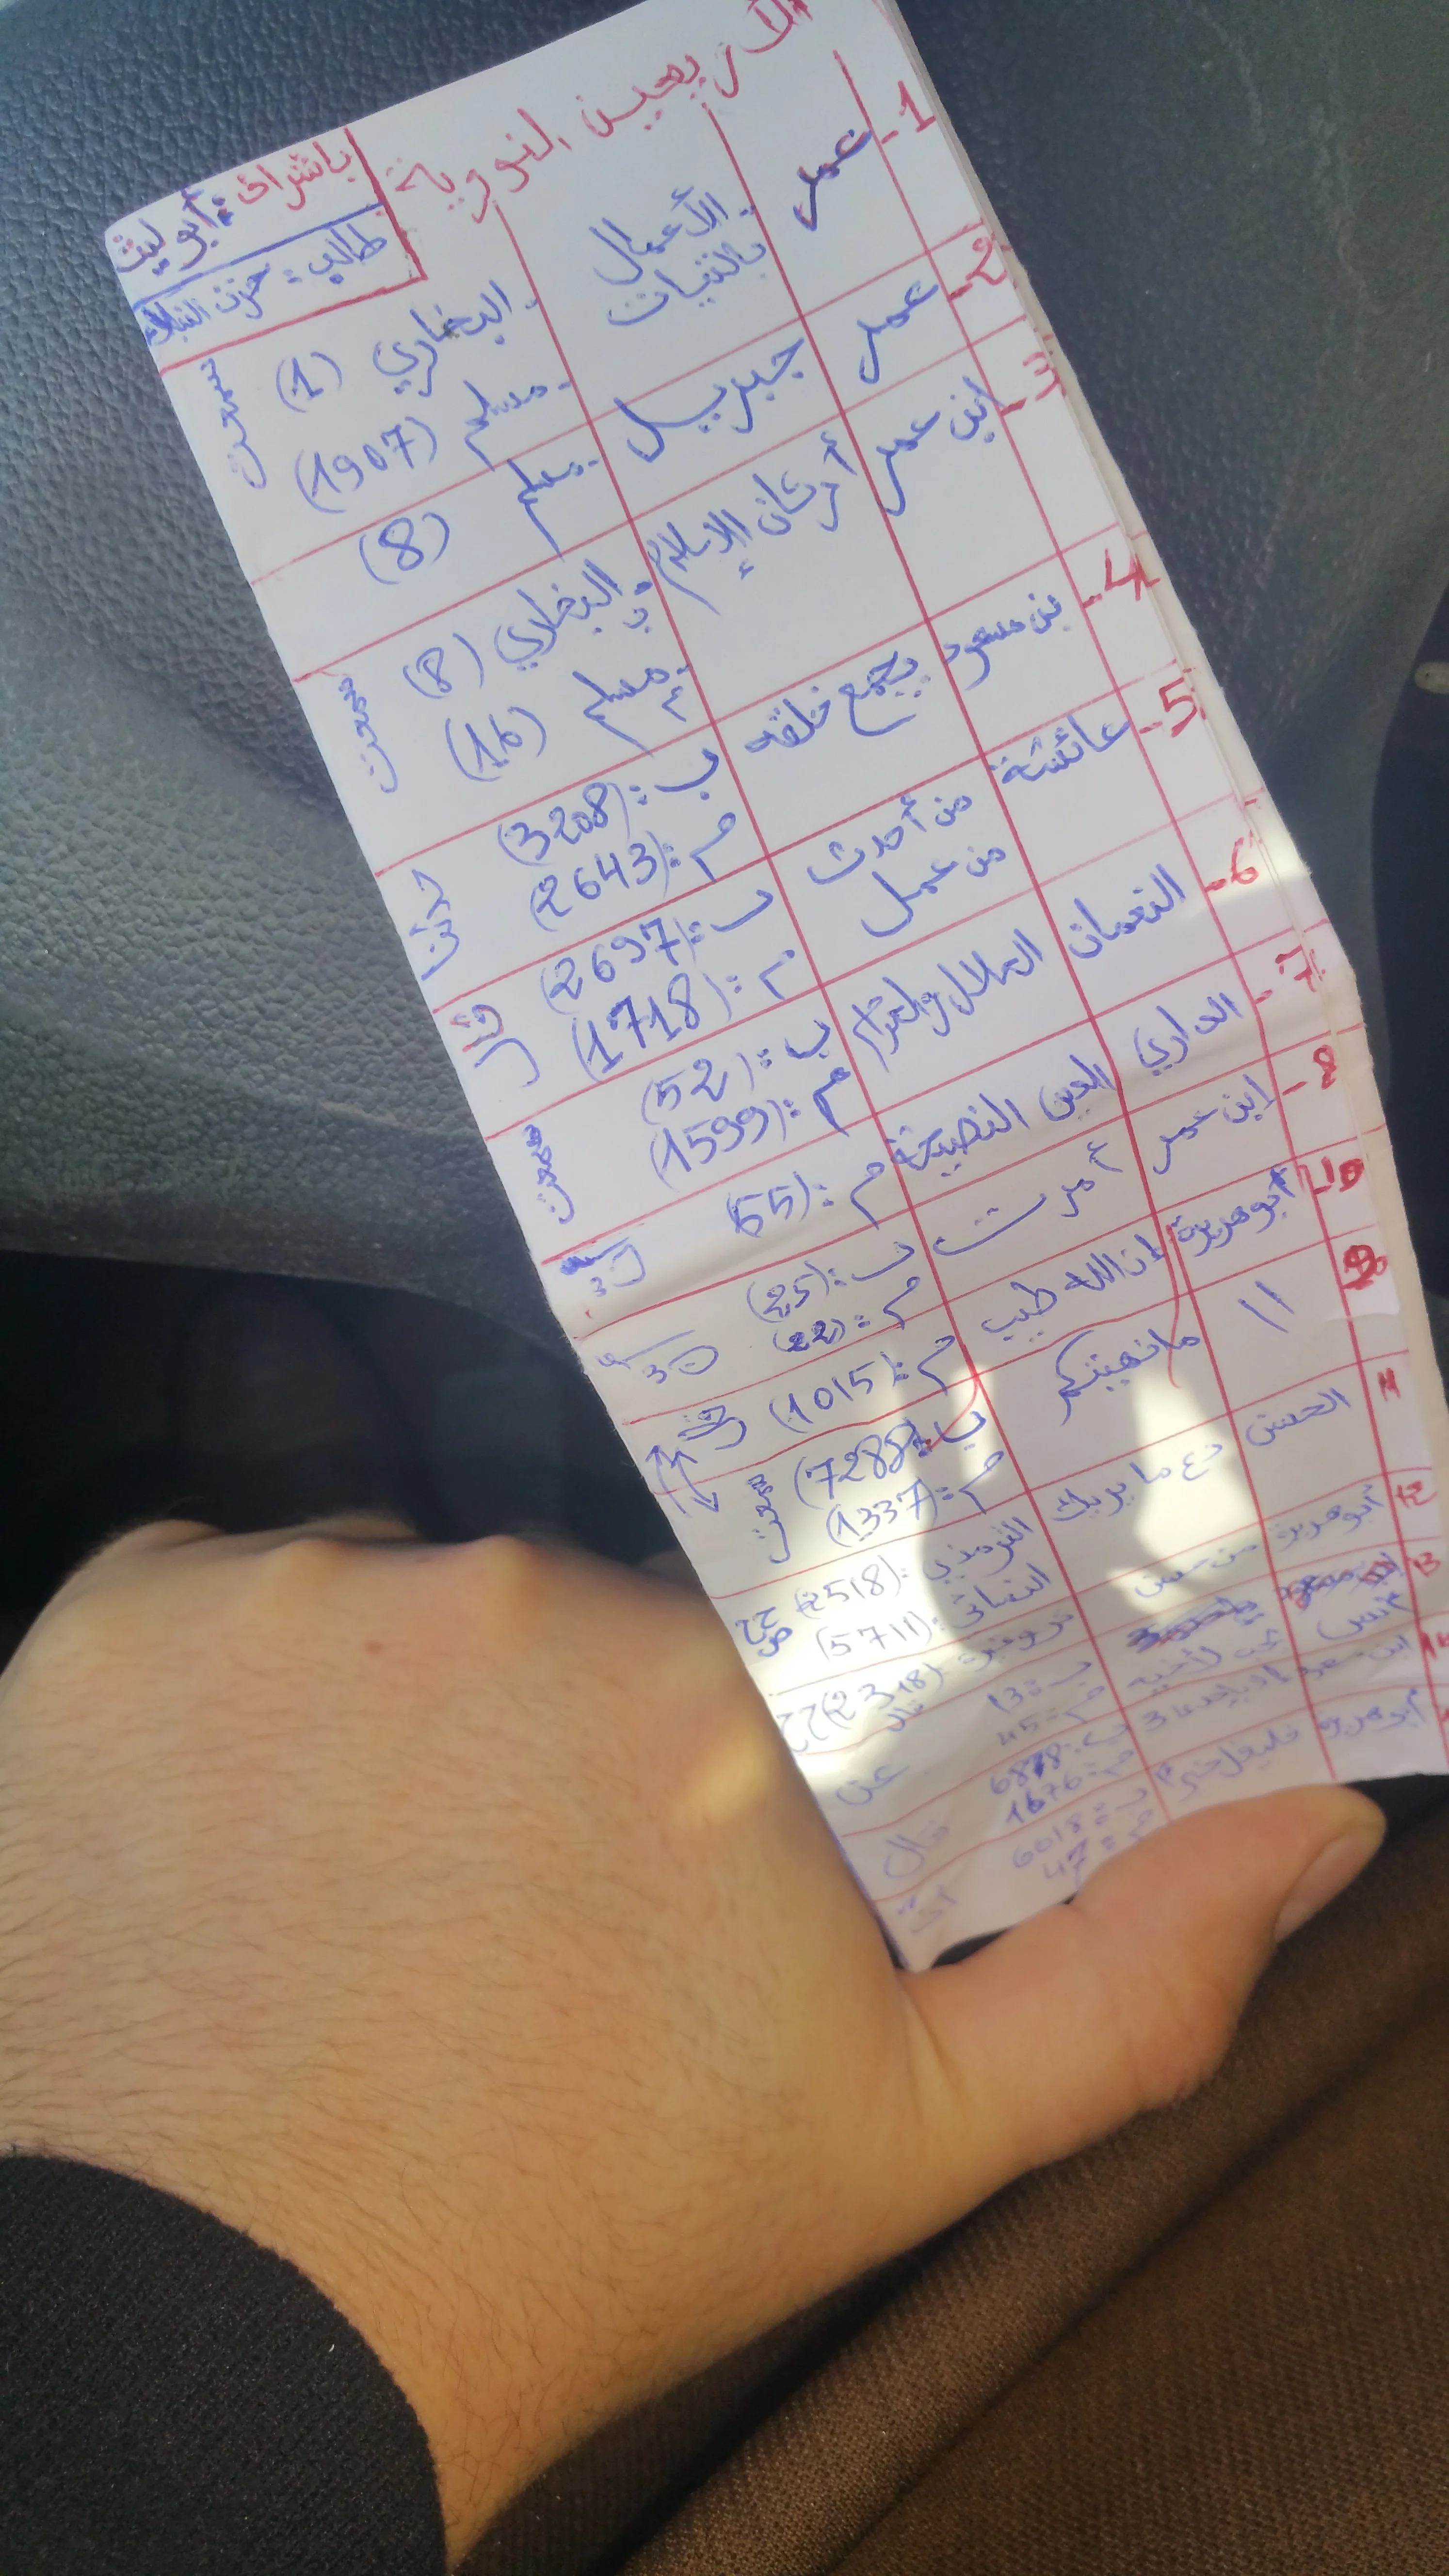 الأربعين النووية
باشراف: أبو ليث
طالب: حزن
1- عمر الأعمال بالنيات - البخاري (1) سمعت
- مسلم (1907)
2- عمر جبريل - مسلم (8)
3- ابن عمر أركان الإسلام - البخاري (8) سمعت
- مسلم (16)
4- بن مسعود يجمع خلقه ب: (3208) حدثنا
م: (2643)
5- عائشة من أحدث ب: (2697) قال
من عمل م: (1718)
6- النعمان الحلال والحرام ب: (52) سمعت
م: (1599)
7- الداري الدين النصيحة م: (55)
8- ابن عمر أمرت ب: (25)
م: (22)
10 أبو هريرة إن الله طيب م: (1015)
9 // ما نهيتكم ب: (7288) سمعت
م: (1337)
11 الحسن دع ما يريبك الترمذي: (2518)
النسائي: (5711)
12 أبو هريرة من حسن (2318)
13 أنس لأخيه ب: 13 عن
م: 45
14 ابن ب: 6878 قال
م: 1676
أبو هريرة فليقل خيرا ب: 6018
م: 47